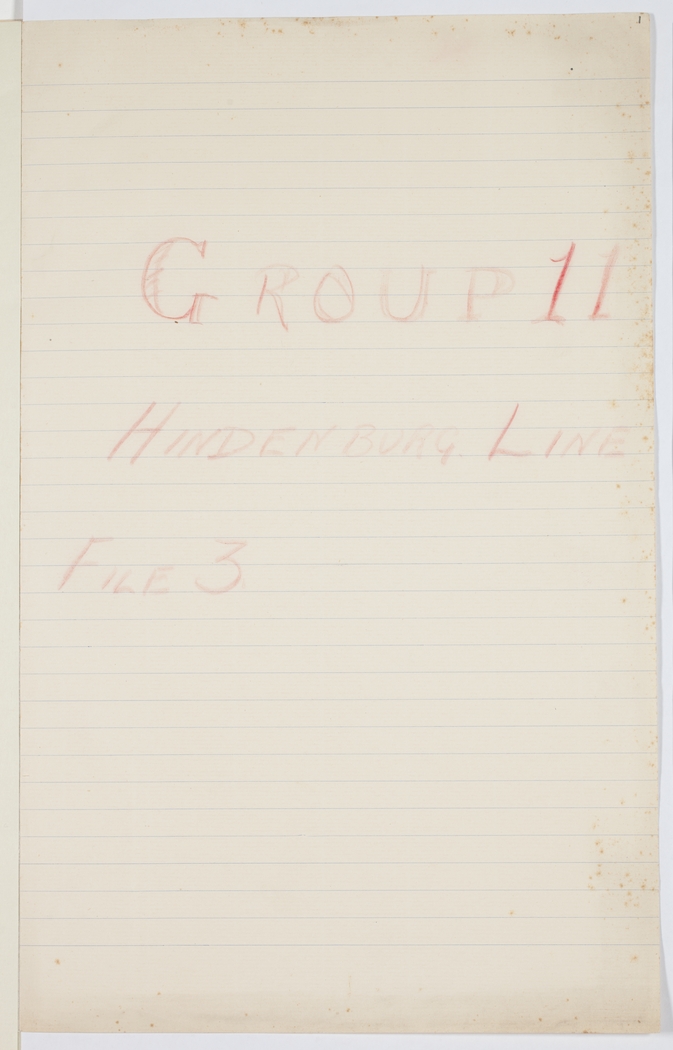 1
GROUP 11
HINDENBURG LINE
FILE 3